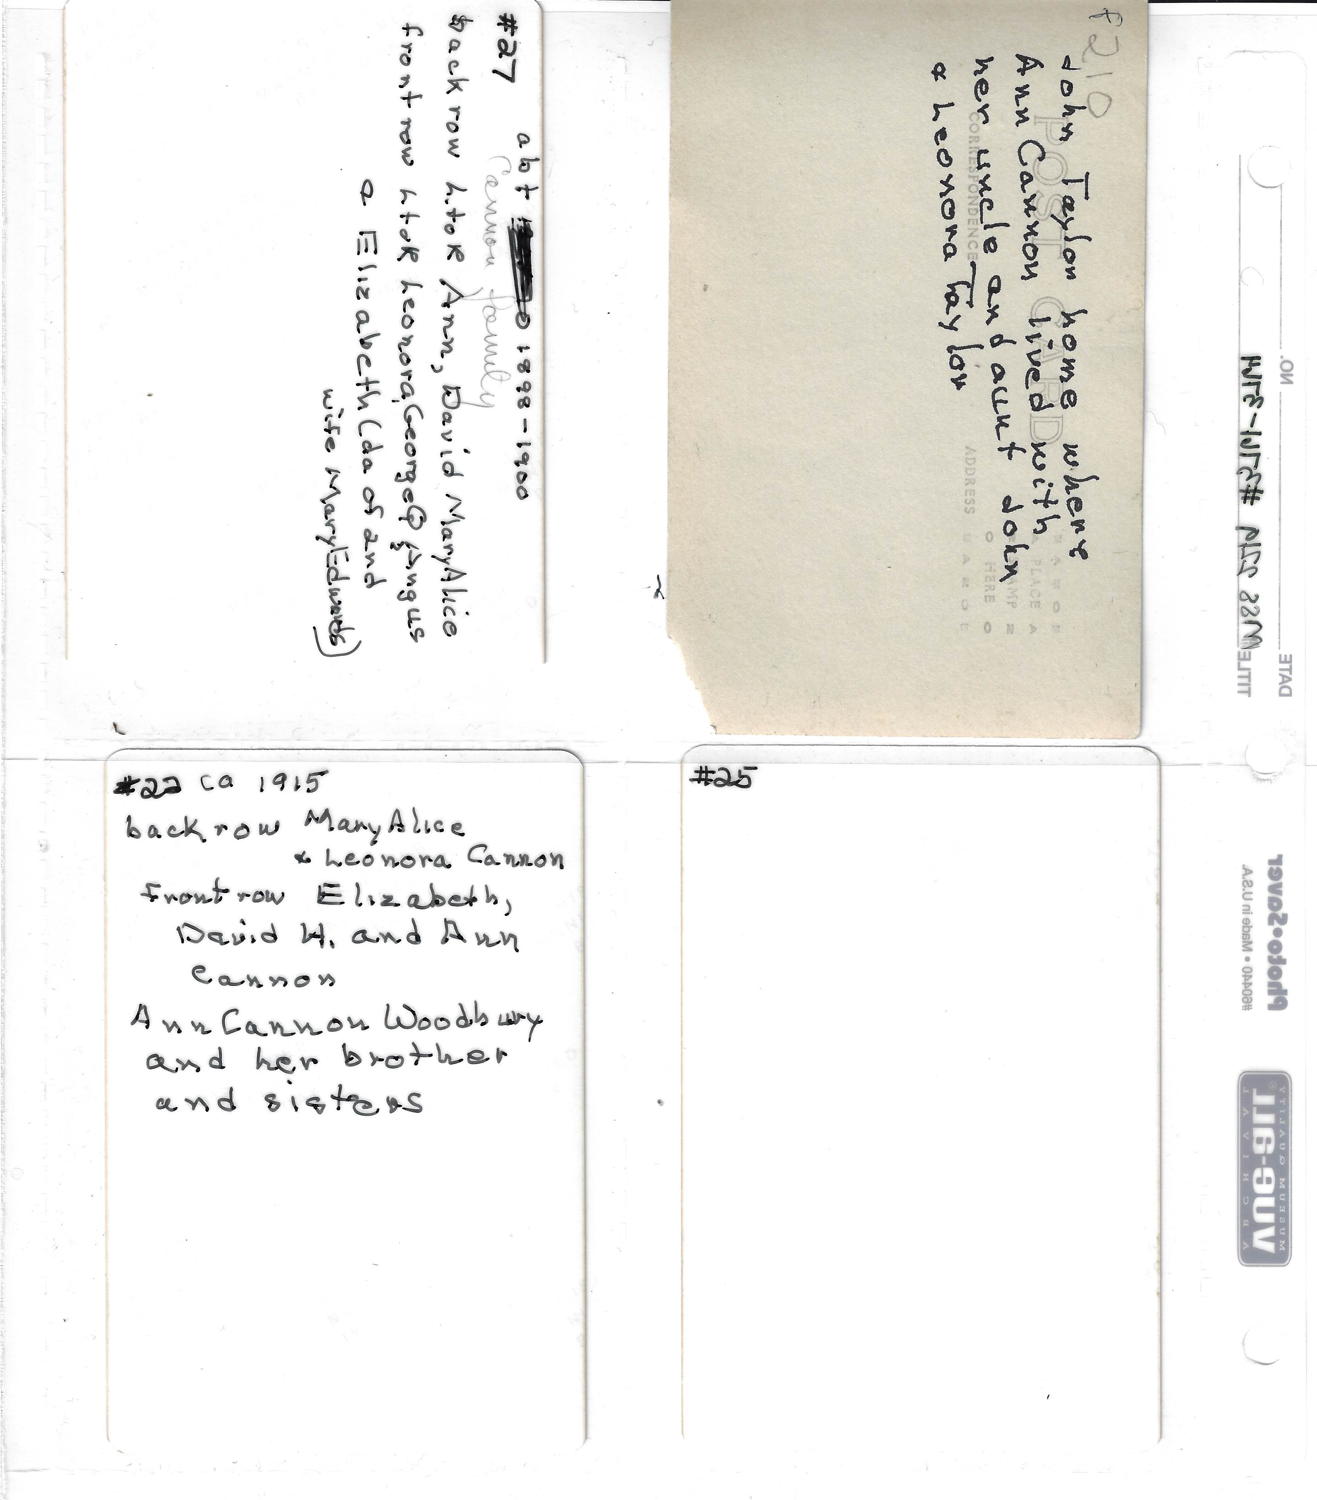 #27 abt 1898-1900
Cannon family
back row L to R Ann, David Mary Alice
front row L to R Leonora, George Q, Angus
& Elizabeth (da of and
wife Mary Edwards)
f210
John Taylor home where
Ann Cannon lived with
her uncle and aunt John
& Leonora Taylor
POST CARD
CORRESPONDENCE
ADDRESS
PLACE
STAMP
HERE
#22 ca 1915
back row Mary Alice
& Leonora Cannon
Front row Elizabeth,
David H. and Ann
Cannon
Ann Cannon Woodbury
and her brother
and sisters
#25
NO.
DATE
TITLE
photo•Saver
Made in U.S.A.
VUE-ALL
ARCHIVAL
MUSEUM QUALITY